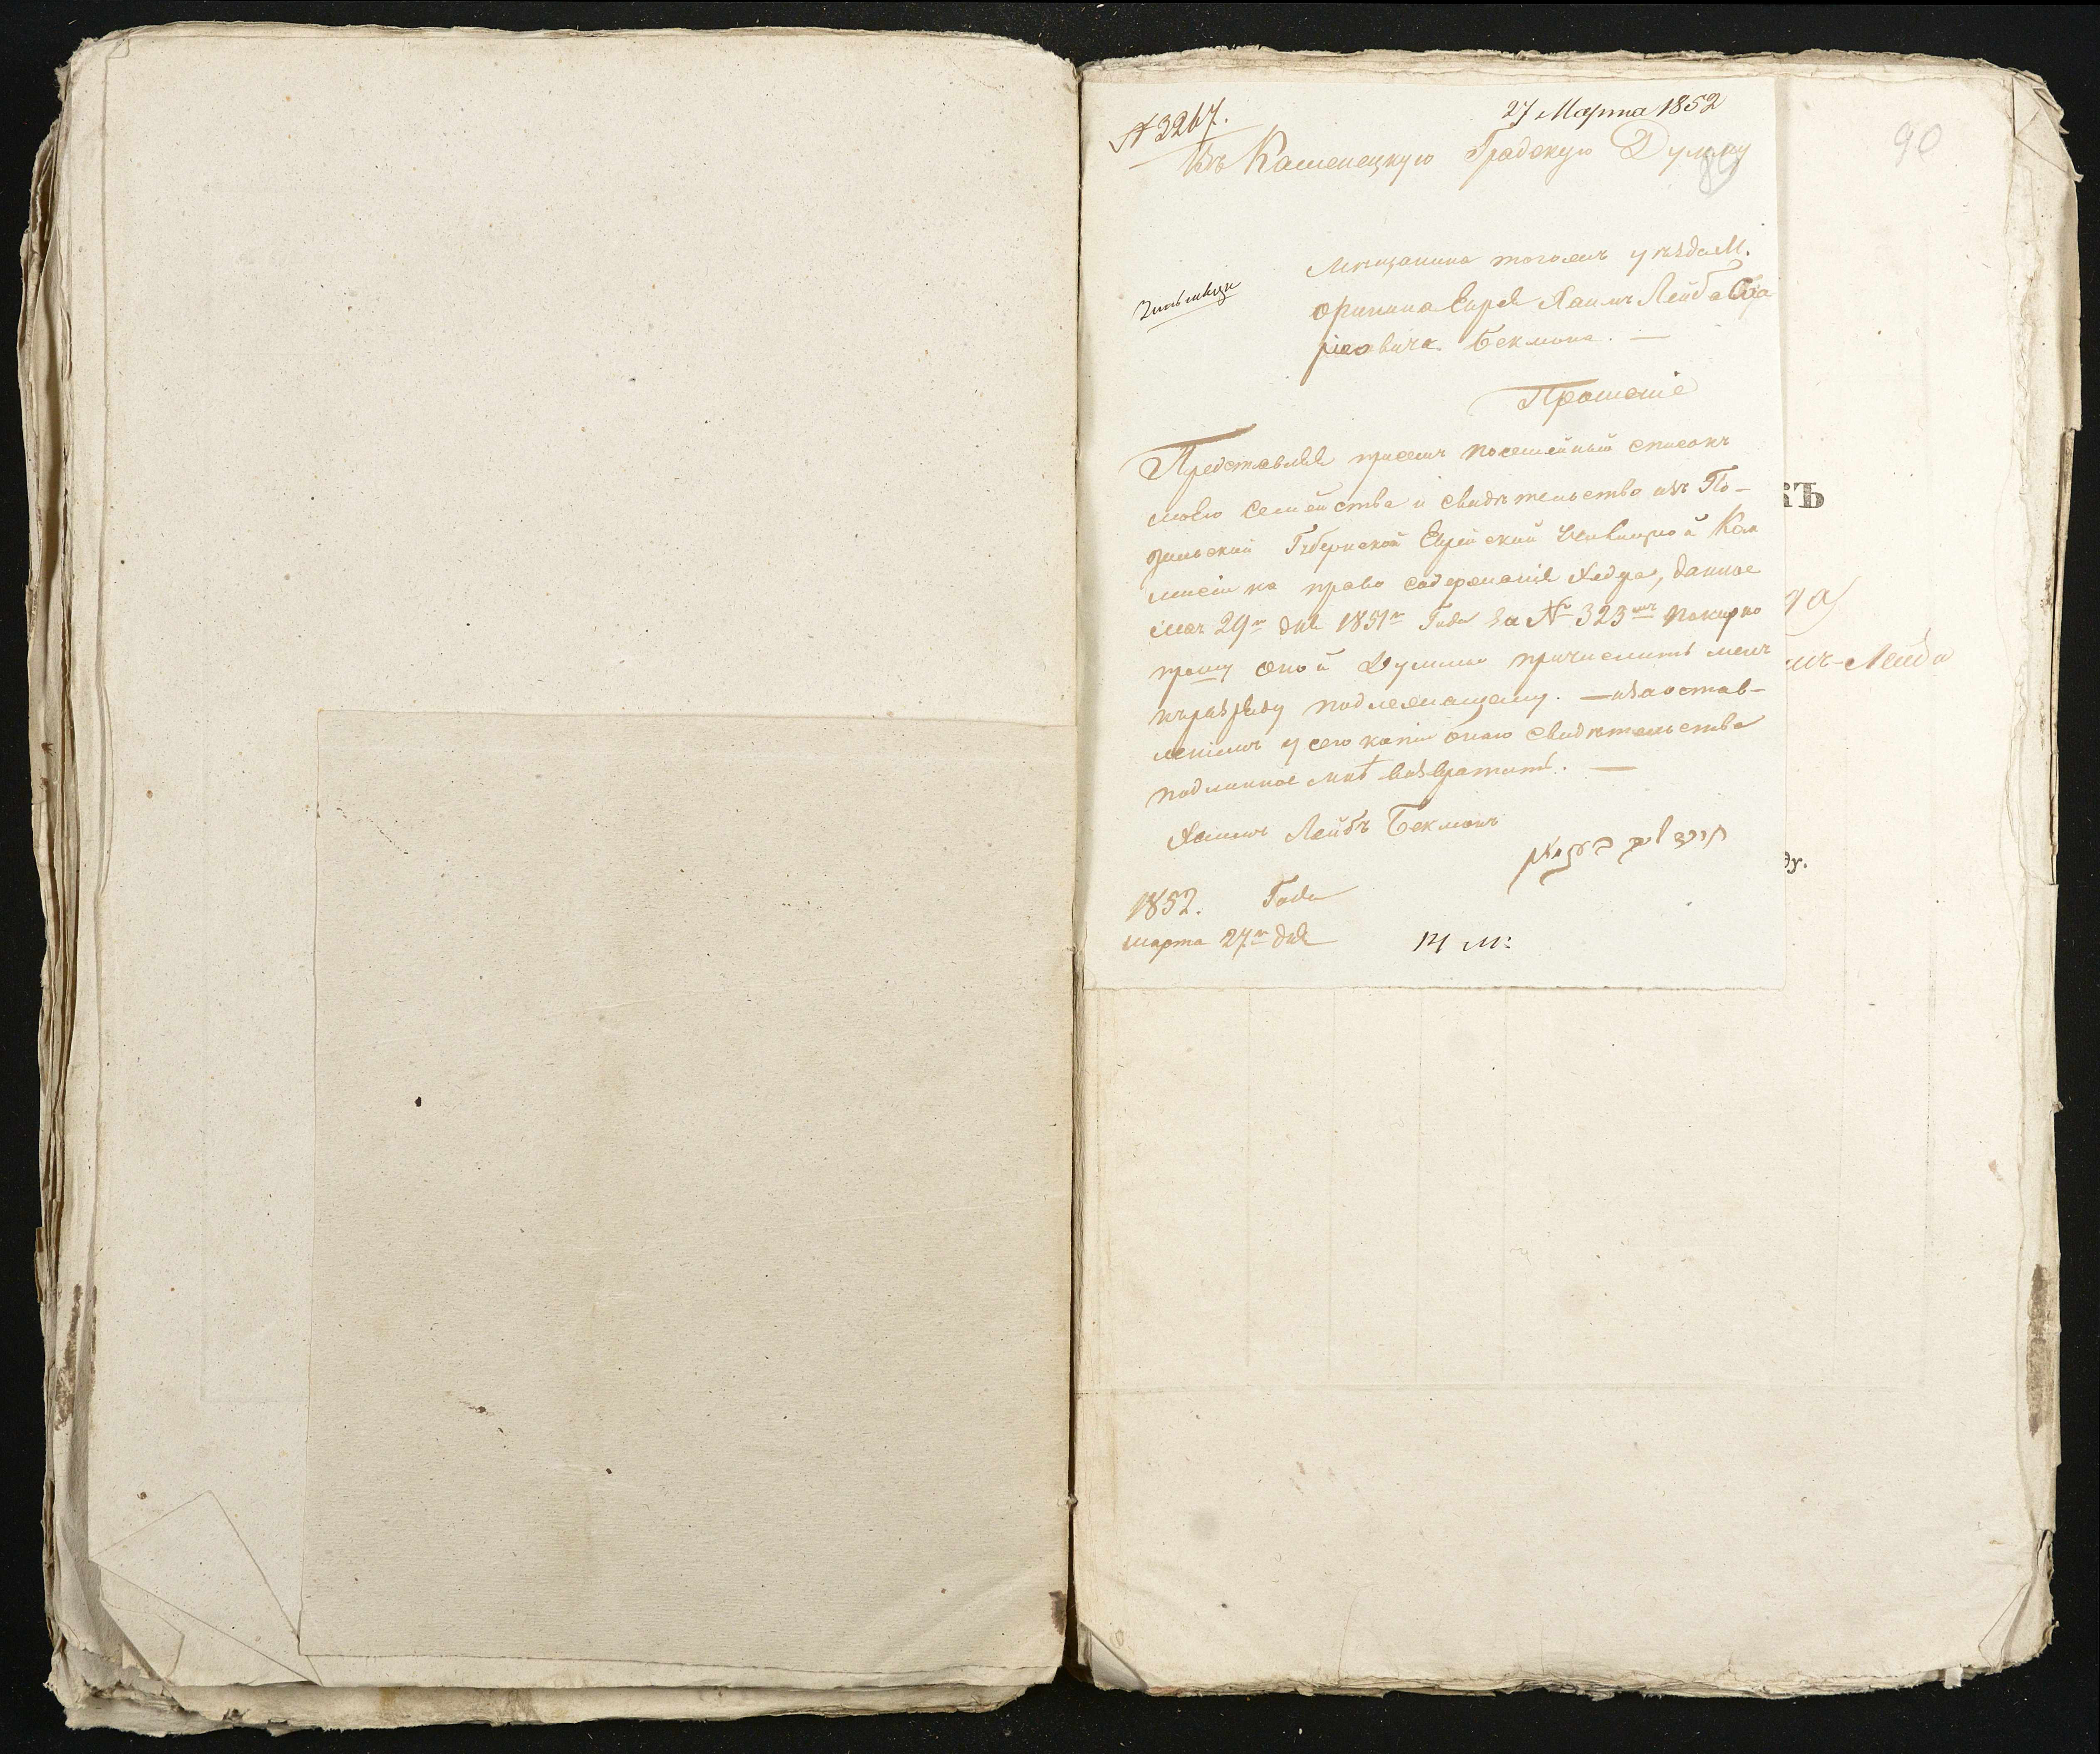 № 3267. 27 Марта 1852
90
Въ Каменецкую Градскую Думу
89
Мѣщанина тогожъ уѣзда М.
Оринина Еврея Хаимъ Лейба Сра
Бекмана. —
Прошеніе
Представляя присемъ посемейный списокъ
моего семейства и свидѣтельство изъ По-
дольской Губернской Еврейской Училищной Ком
мисіи на право содержанія Хедра, данное
29го дня 1851го Года за № 323мъ покорно
прошу оной Думы причислить меня
къ разряду подлежащему. — и за остав-
леніемъ у сего копіи онаго свидѣтельства
подлинное мнѣ возвратить. —
Хаимъ Лейбъ Бекманъ
חיים ליב בעקמאן
1852. Года
марта 27го дня 14 м:
къ
да)
мъ-Лейба
ду.